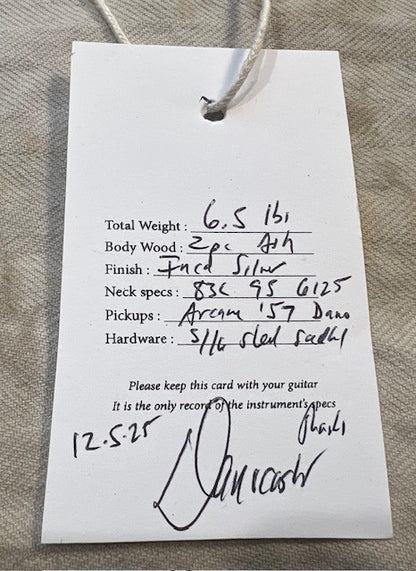 Total Weight : 6.5 lbs
Body Wood : 2pc Ash
Finish : Inca Silver
Neck specs : 83C 95 6125
Pickups : Arcane '57 Dano
Hardware : steel
Please keep this card with your guitar
It is the only record of the instrument's specs
12.5.25
Thanks
Danocaster